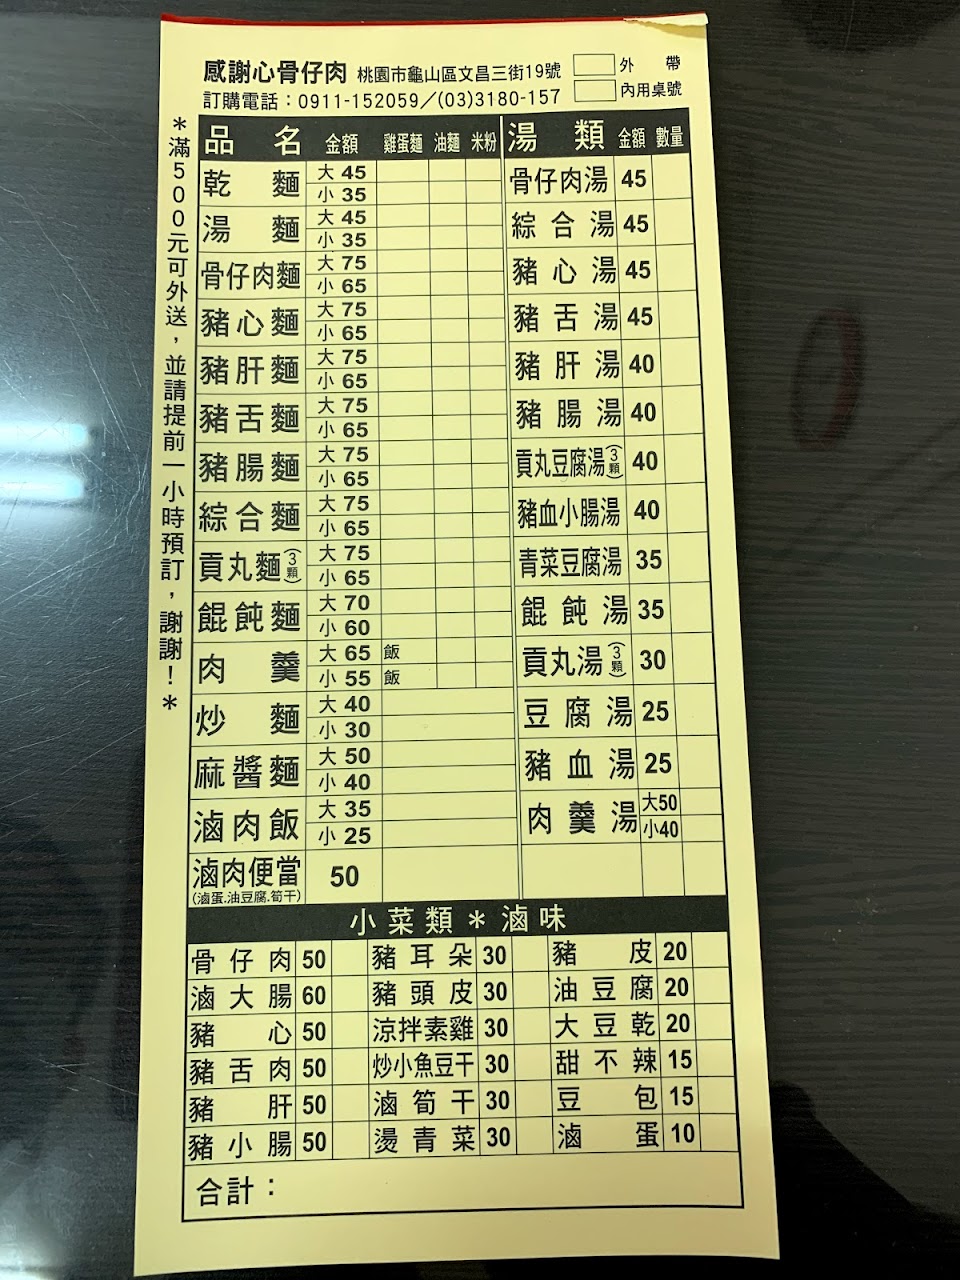 感謝心骨仔肉 桃園市龜山區文昌三街19號 外帶
訂購電話：0911-152059／(03)3180-157 內用桌號
＊滿500元可外送，並請提前一小時預訂，謝謝！＊
品名 金額 雞蛋麵 油麵 米粉 湯類 金額 數量
乾麵 大 45 小 35
湯麵 大 45 小 35
骨仔肉麵 大 75 小 65
豬心麵 大 75 小 65
豬肝麵 大 75 小 65
豬舌麵 大 75 小 65
豬腸麵 大 75 小 65
綜合麵 大 75 小 65
貢丸麵(3顆) 大 75 小 65
餛飩麵 大 70 小 60
肉羹 大 65 飯 小 55 飯
炒麵 大 40 小 30
麻醬麵 大 50 小 40
滷肉飯 大 35 小 25
滷肉便當 (滷蛋.油豆腐.筍干) 50
骨仔肉湯 45
綜合湯 45
豬心湯 45
豬舌湯 45
豬肝湯 40
豬腸湯 40
貢丸豆腐湯(3顆) 40
豬血小腸湯 40
青菜豆腐湯 35
餛飩湯 35
貢丸湯(3顆) 30
豆腐湯 25
豬血湯 25
肉羹湯 大50 小40
小菜類＊滷味
骨仔肉 50 豬耳朵 30 豬皮 20
滷大腸 60 豬頭皮 30 油豆腐 20
豬心 50 涼拌素雞 30 大豆乾 20
豬舌肉 50 炒小魚豆干 30 甜不辣 15
豬肝 50 滷筍干 30 豆包 15
豬小腸 50 燙青菜 30 滷蛋 10
合計：